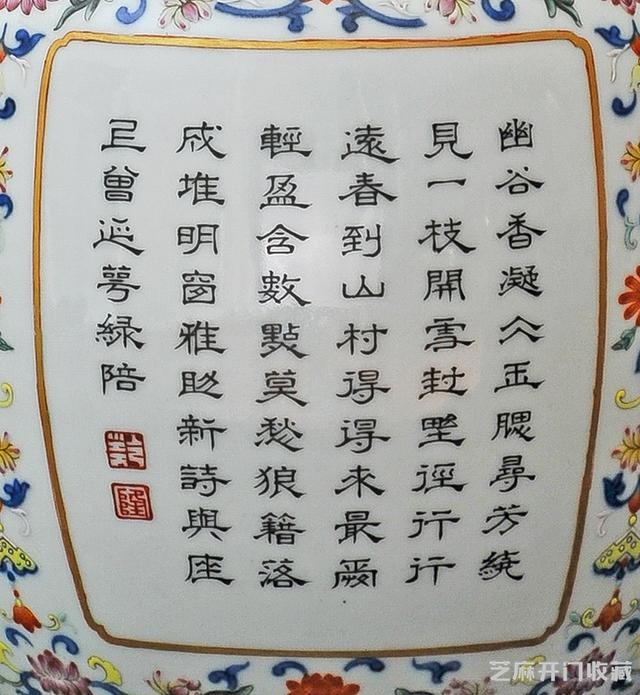 幽谷香凝仌玉腮尋芳纔
見一枝開雪封野徑行行
遠春到山村得得來最
輕盈含數點莫愁狼籍落
成堆明窗雅助新詩興座
上曾延萼綠陪
乾
隆
芝麻开门收藏